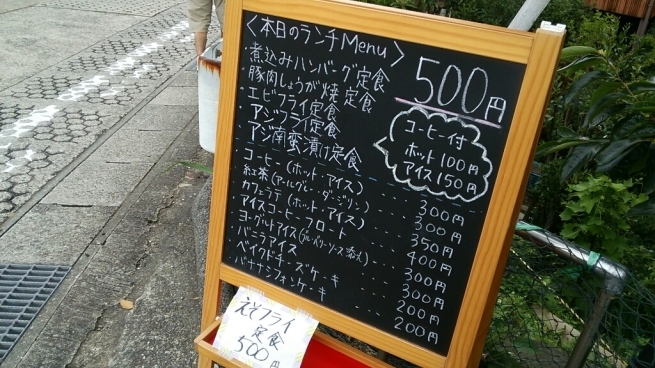 <本日のランチMenu>
・煮込みハンバーグ定食
・豚肉しょうが焼定食
・エビフライ定食
・アジフライ定食
・アジ南蛮漬け定食
500円
コーヒー付
ホット 100円
アイス 150円
・コーヒー(ホット・アイス) ・・・ 300円
・紅茶(アールグレー・ダージリン) ・・・ 300円
・カフェラテ(ホット・アイス) ・・・ 350円
・アイスコーヒーフロート ・・・ 400円
・ヨーグルトアイス(ブルーベリーソース添え) ・・・ 300円
・バニラアイス ・・・ 300円
・ベイクドチーズケーキ ・・・ 200円
・バナナシフォンケーキ ・・・ 200円
えそフライ
定食
500円